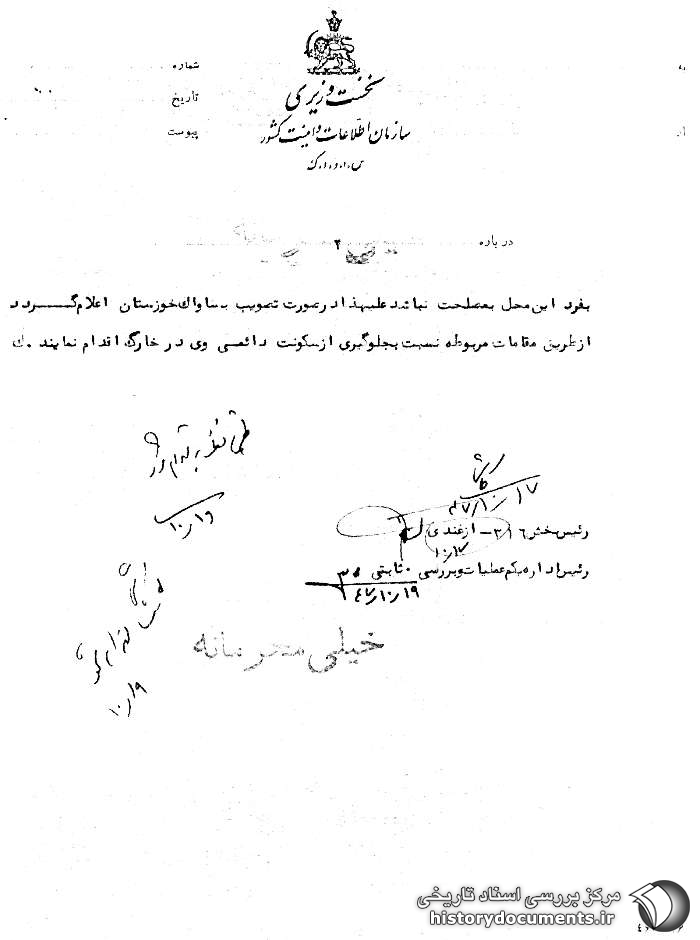 شماره
تاریخ
پیوست
نخست وزیری
سازمان اطلاعات و امنیت کشور
س.ا.و.ا.ک
درباره
۲
بفرد این محل بمصلحت نباشد علیهذا در صورت تصویب بساواک خوزستان اعلام گردد
از طریق مقامات مربوطه نسبت بجلوگیری از سکونت دائمی وی در خارک اقدام نمایند . ک
۴۷/۱۰/۱۷
رئیس بخش ۳۱۶ - ازغندی
۱۰/۱۷
رئیس اداره یکم عملیات و بررسی . ثابتی
۴۷/۱۰/۱۹
۱۰/۱۹
خیلی محرمانه
۱۰/۱۹
مرکز بررسی اسناد تاریخی
historydocuments.ir